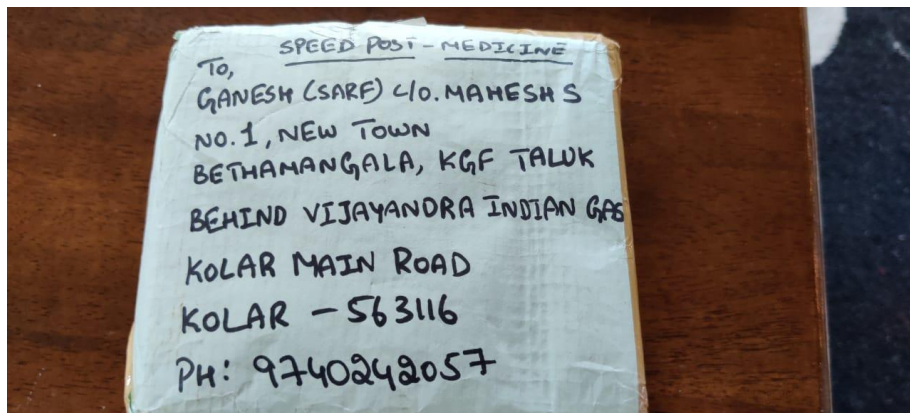 SPEED POST - MEDICINE
To,
GANESH (SARF) C/O. MAHESH S
NO.1, NEW TOWN
BETHAMANGALA, KGF TALUK
BEHIND VIJAYANDRA INDIAN GAS
KOLAR MAIN ROAD
KOLAR - 563116
PH: 9740242057